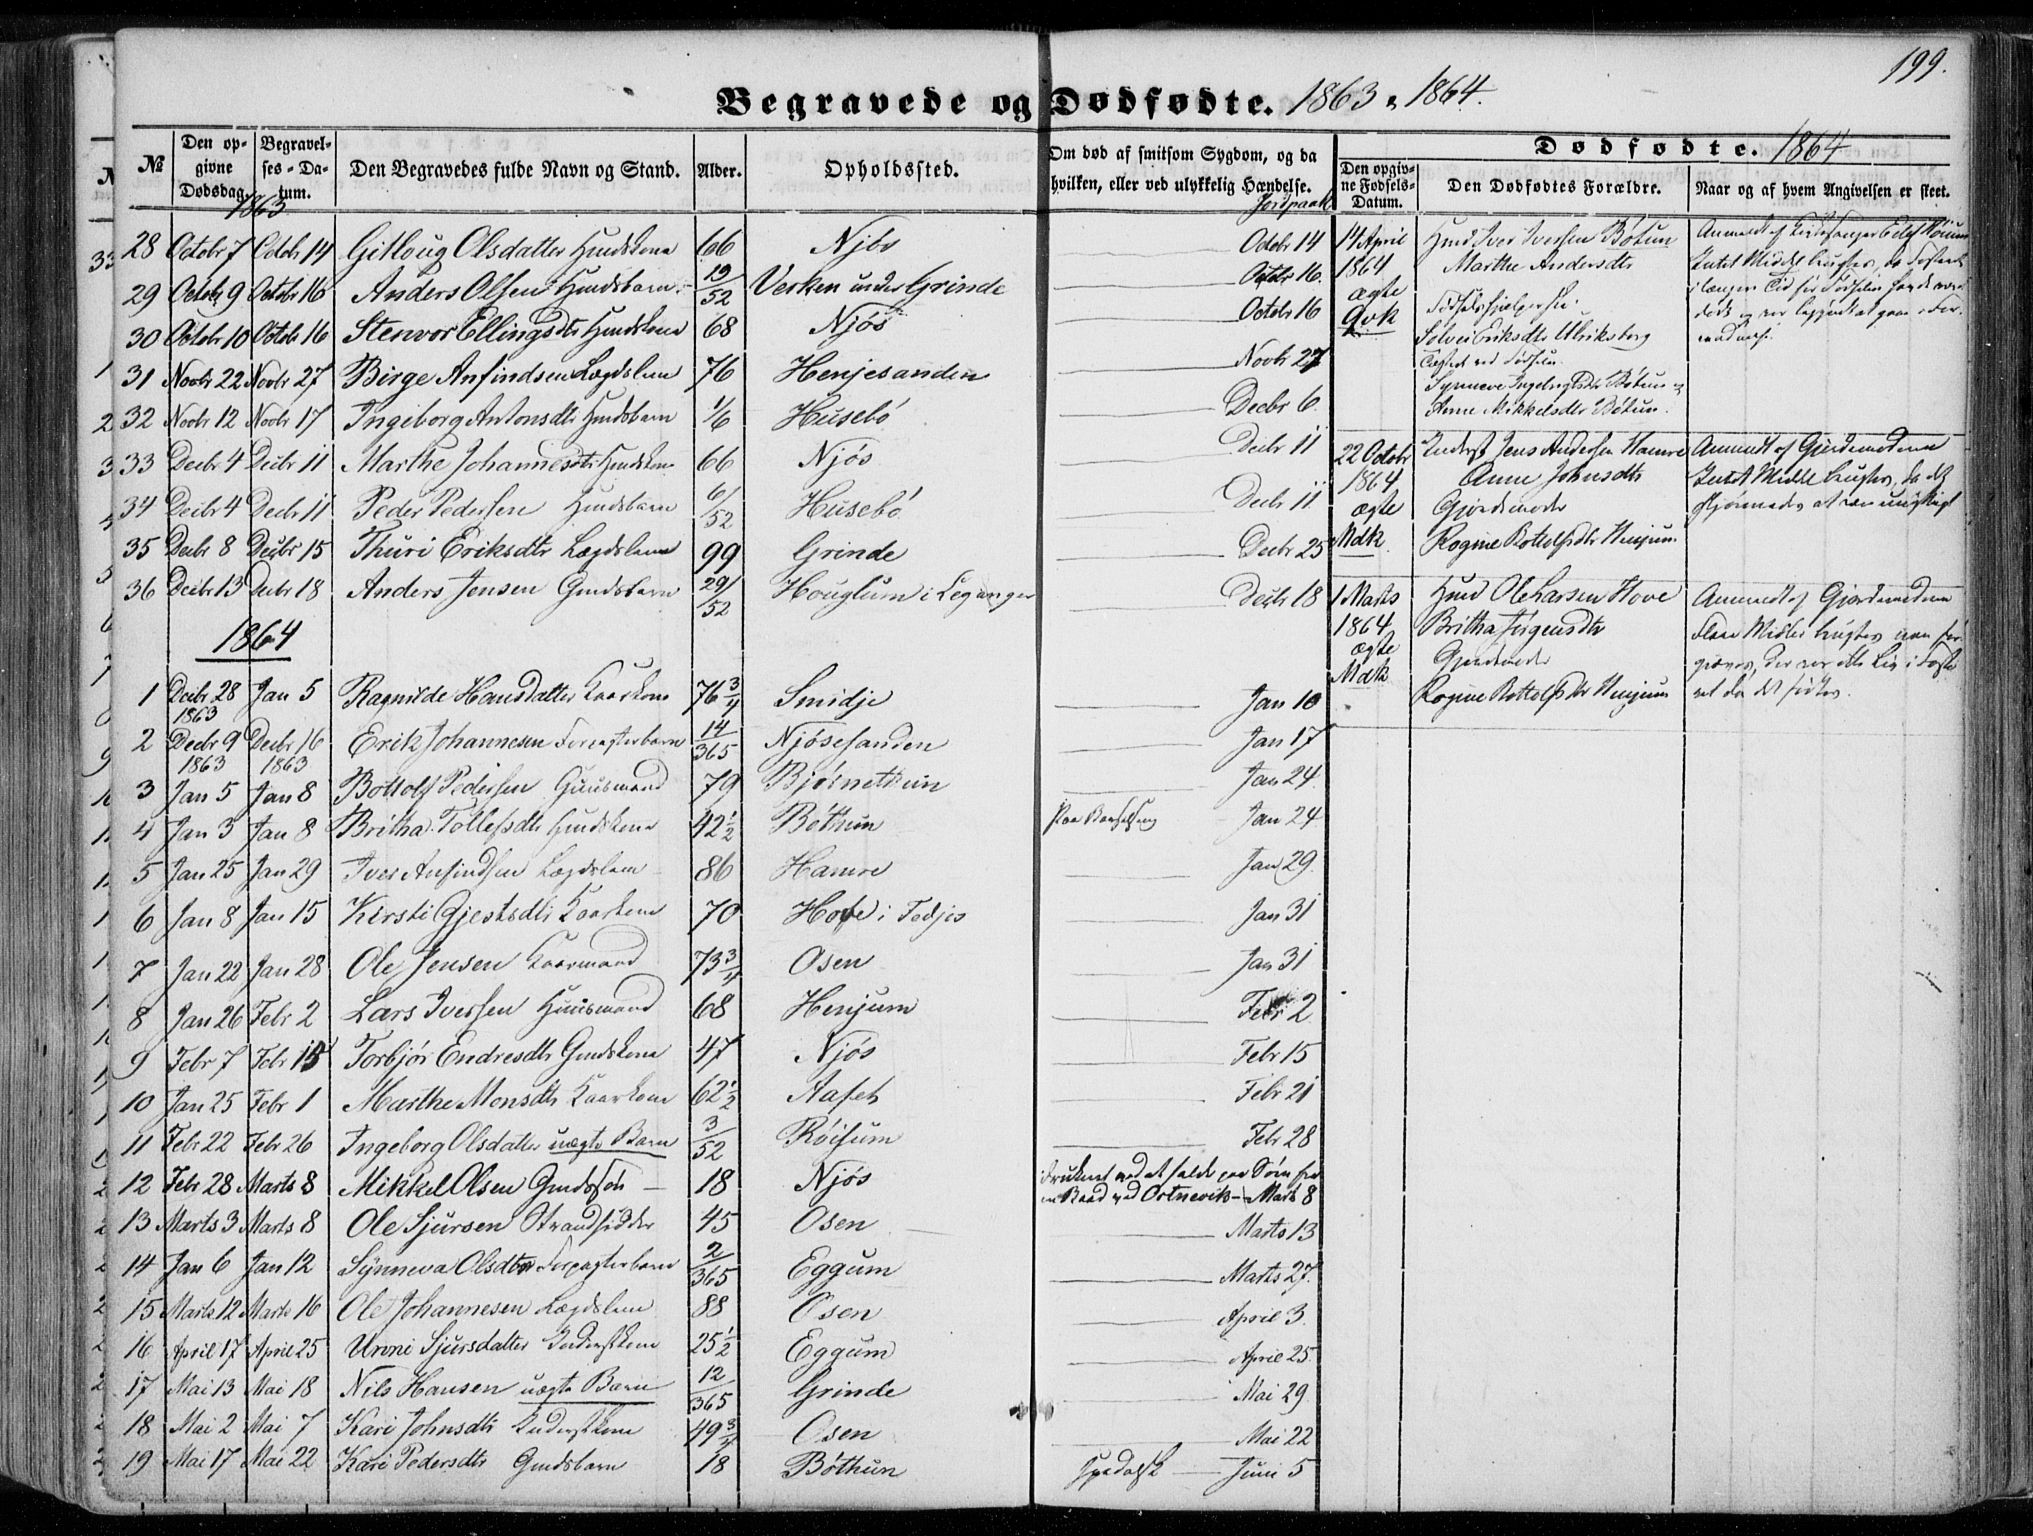 199.
Begravede og Dødfødte. 1863 & 1864.
№ | Den opgivne Dødsdag. | Begravelses-Datum. | Den Begravedes fulde Navn og Stand. | Alder. | Opholdssted. | Om død af smitsom Sygdom, og da hvilken, eller ved ulykkelig Hændelse.
1863 | Jordpaak
28 Octobr 7 Octobr 14 Gitloug Olsdatter 66 Njøs Octobr 14
29 Octobr 9 Octobr 16 Anders Olsen 19/52 Verken under Grinde Octobr 16
30 Octobr 10 Octobr 16 Stenvor Ellingsdtr 68 Njøs Octobr 16
31 Novbr 22 Novbr 27 Birge Anfindsen Lægdslem 76 Henjesanden Novbr 27
32 Novbr 12 Novbr 17 Ingeborg Antonsdtr 1/6 Husebø Decbr 6
33 Decbr 4 Decbr 11 Marthe Johannesdtr 66 Njøs Decbr 11
34 Decbr 4 Decbr 11 Peder Pedersen 6/52 Husebø Decbr 11
35 Decbr 8 Decbr 15 Thuri Eriksdtr Lægdslem 99 Grinde Decbr 25
36 Decbr 13 Decbr 18 Anders Jensen Gmdsbarn 29/52 Houglum i Leganger Decbr 18
1864
1 Decbr 28 1863 Jan 5 Ragnilde Hansdatter Kaarkone 76 3/4 Smidje Jan 10
2 Decbr 9 1863 Decbr 16 1863 Erik Johannesen Forpagterbarn 14/365 Njøsesanden Jan 17
3 Jan 5 Jan 8 Bottolf Pedersen Huusmand 79 Bjørnetun Jan 24
4 Jan 3 Jan 8 Britha Tollefsdtr 42 1/2 Bøthun Paa Barselseng Jan 24
5 Jan 25 Jan 29 Iver Anfindsen Lægdslem 86 Hamre Jan 29
6 Jan 8 Jan 15 Kirsti Gjestsdtr Kaarkone 70 Hove i Jan 31
7 Jan 22 Jan 28 Ole Jensen Kaarmand 73 3/4 Osen Jan 31
8 Jan 26 Febr 2 Lars Iversen Huusmand 68 Henjum Febr 2
9 Febr 7 Febr 15 Torbjør Endresdtr Gmdskone 47 Njøs Febr 15
10 Jan 25 Febr 1 Marthe Monsdtr Kaarkone 62 1/2 Aafet Febr 21
11 Febr 22 Febr 26 Ingeborg Olsdatter uægte Barn 3/52 Røisum Febr 28
12 Febr 28 Marts 8 Mikkel Olsen Gmdssøn 18 Njøs Druknet ved at falde paa Søen fra en Baad ved Ortnevik - Marts 8
13 Marts 3 Marts 8 Ole Sjursen Strandsidder 45 Osen Marts 13
14 Jan 6 Jan 12 Synneva Olsdtr Forpagterbarn 2/365 Eggum Marts 27
15 Marts 12 Marts 16 Ole Johannesen Lægdslem 88 Osen April 3
16 April 17 April 25 Urvni Sjursdatter Inderstkone 25 1/2 Eggum April 25
17 Mai 13 Mai 18 Nils Hansen uægte Barn 12/365 Grinde Mai 29
18 Mai 2 Mai 7 Kari Johnsdtr Inderstkone 49 3/4 Osen Mai 22
19 Mai 17 Mai 22 Kari Pedersdtr Gmdsbarn 18 Bøthun Spedalsk Juni 5
Dødfødte. 1864
Den opgivne Fødsels-Datum. | Den Dødfødtes Forældre. | Naar og af hvem Angivelsen er skeet.
14 April
1864
ægte
Qvk
Iver Iversen Bøtun
Marthe Andersdtr
Fødselshjelperske
Solvei Eriksdtr Ulriksborg
Tilstede ved Fødselen
Synneve Bøtun og
Anne Mikkelsdtr Bøtun.
Anmeldt af Kirkesanger
Intet Middel brugtes, da Fosteret
i længere Tid før Fødselen havde været
22 Octobr
1864
ægte
Mdk
Inderst Jens Andersen Hamre
Anne Johnsdtr
Gjordemoder
Rogine Bottolfsdtr Henjum.
Anmeldt af Gjordemoderen
Intet Middel brugtes, da det
skjønnedes at være unyttigt
1 Marts
1864
ægte
Mdk
Gmd Ole Larsen Hove
Britha Jørgensdtr
Gjordemoder
Rogine Bottolfsdtr Henjum
Anmeldt af Gjordemoderen
Flere Midler brugtes men
der var ikke Liv i Fosteret
da det fødtes.